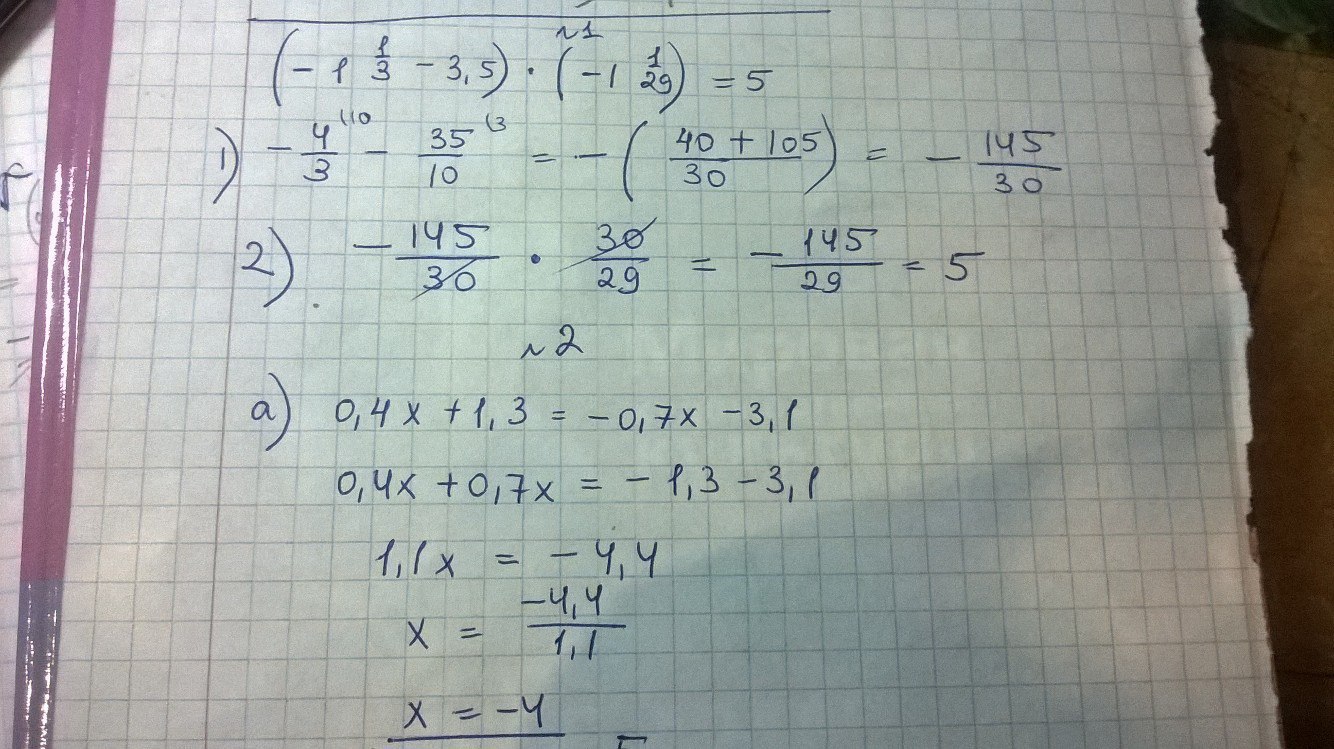 №1
(-1 1/3 - 3,5) · (-1 1/29) = 5
1) - 4/3 (10 - 35/10 (3 = - (40 + 105 / 30) = - 145/30
2) - 145/30 · 30/29 = - 145/29 = 5
№2
а) 0,4х + 1,3 = -0,7х - 3,1
0,4х + 0,7х = - 1,3 - 3,1
1,1х = - 4,4
х = -4,4/1,1
х = -4